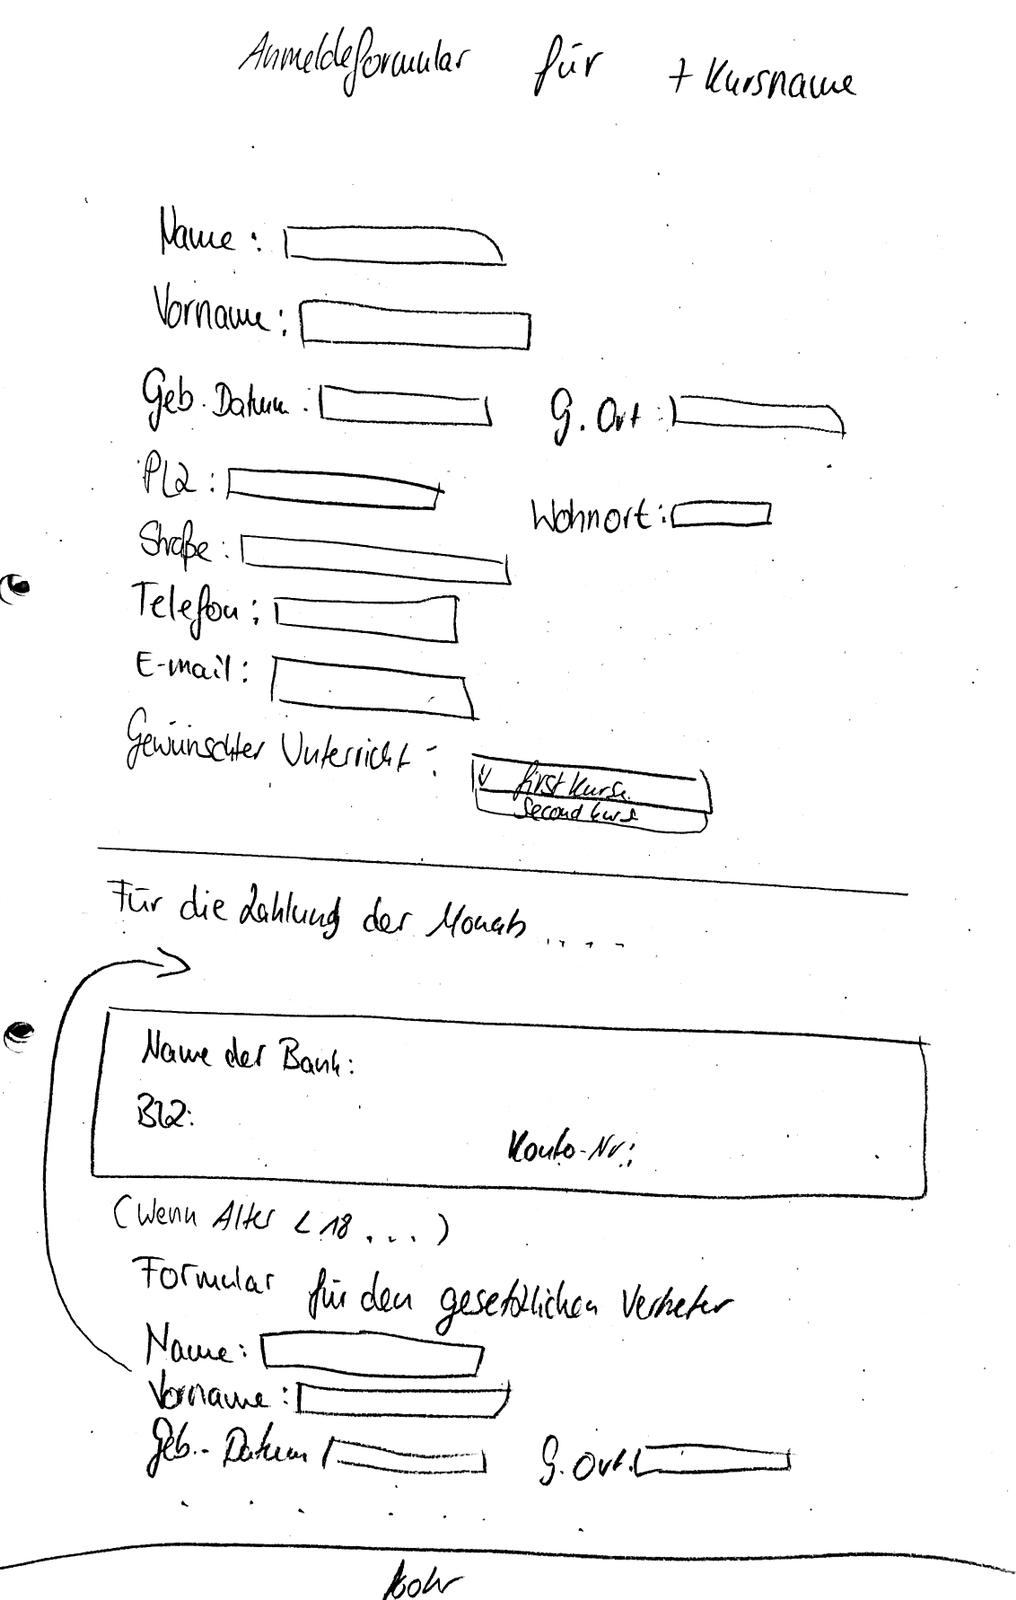 Anmeldeformular für + Kursname
Name:
Vorname:
Geb. Datum: G. Ort:
PLZ:
Wohnort:
Straße:
Telefon:
E-mail:
Gewünschter Unterricht:
first kurse
second kurse
Für die Zahlung der Monats ....
Name der Bank:
BLZ:
Konto-Nr:
(Wenn Alter < 18 ...)
Formular für den gesetzlichen Vertreter
Name:
Vorname:
Geb.-Datum G. Ort: